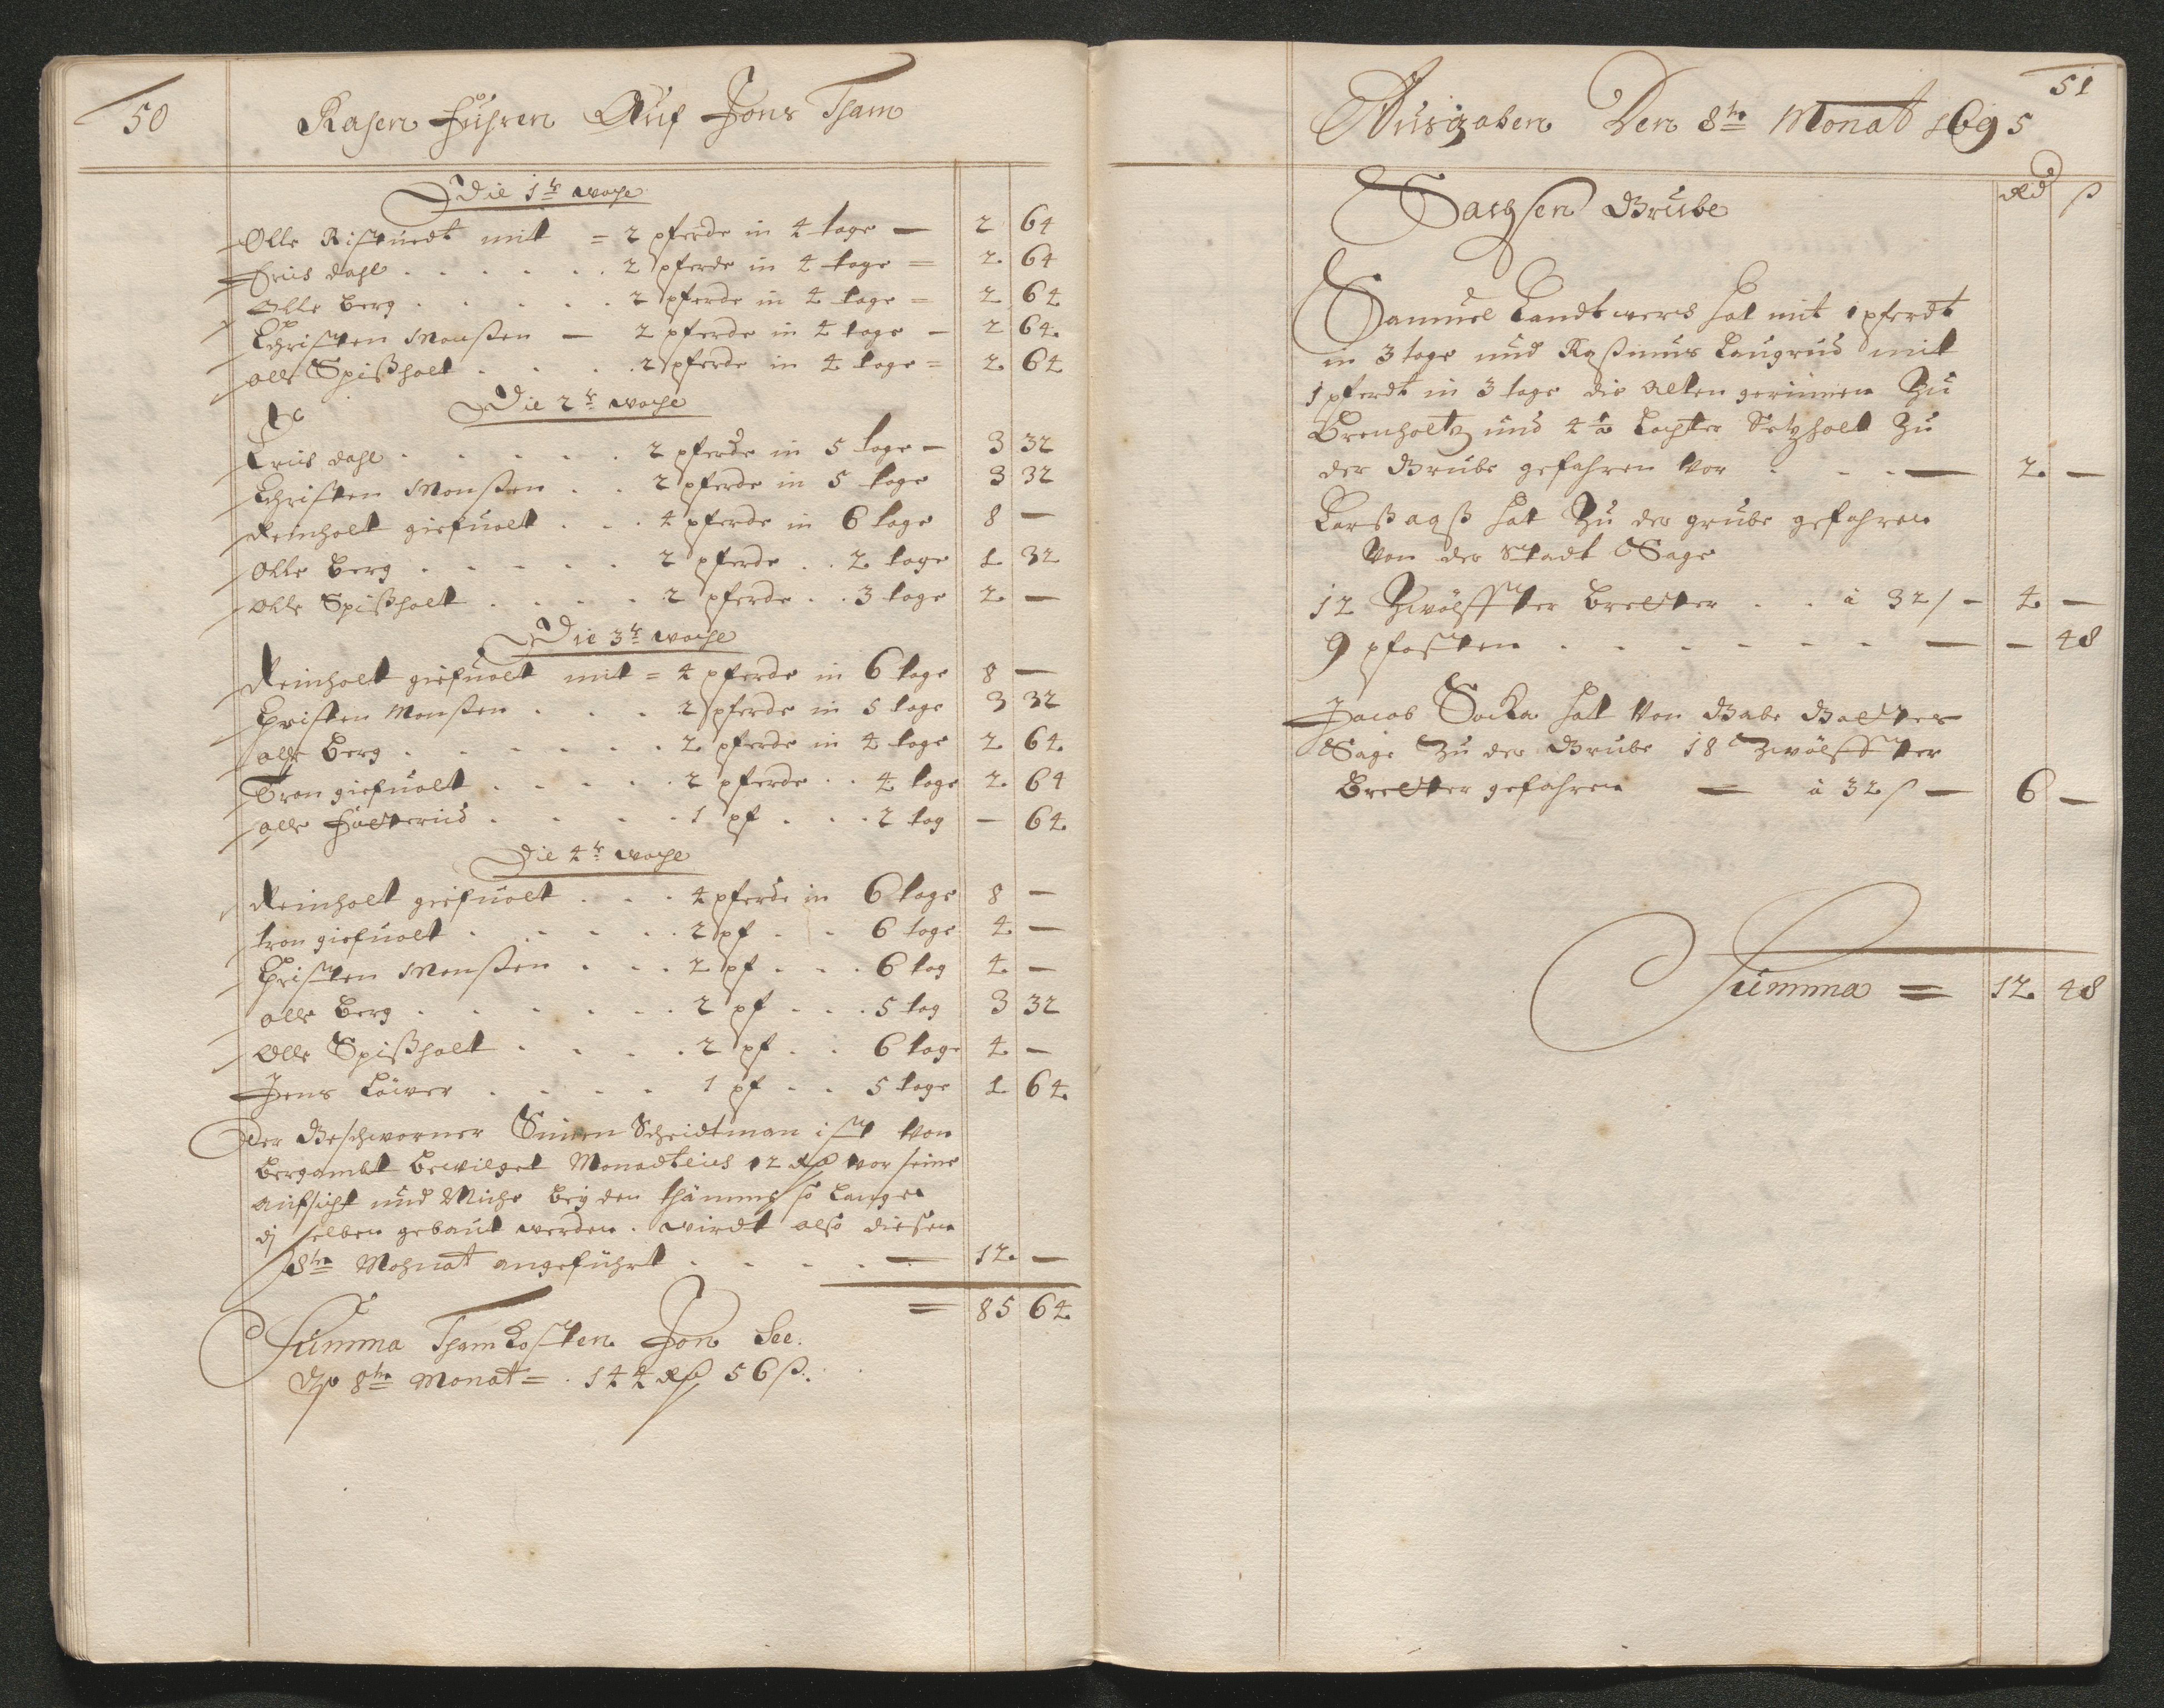 50
Rasen führen Auf Jons Tham
Die 1te woche
Olle Ristuedt mit = 2 pferde in 4 tage — 2 64
Friis dahl . . . . . . 2 pferde in 4 tage = 2. 64
Olle Berg . . . . . . 2 pferde in 4 tage = 2 64
Christen Monßen — 2 pferde in 4 tage — 2 64.
olle Spißholt . . . . 2 pferde in 4 tage = 2. 64
Die 2te woche
Friis dahl . . . . . . 2 pferde in 5 tage — 3 32
Christen Monßen . . 2 pferde in 5 tage 3 32
Reinholt giefuolt . . . 4 pferde in 6 tage 8 —
Olle Berg . . . . . 2 pferde . . 2 tage 1 32
Olle Spißholt . . . . 2 pferde . . 3 tage 2. —
Die 3te woche
Reinholt giefuolt mit = 4 pferde in 6 tage 8 —
Christen Monßen . . . . 2 pferde in 5 tage 3 32
olle Berg . . . . . . . 2 pferde in 4 tage 2 64.
Tron giefuolt . . . . . 2 pferde . . 4 tage 2. 64
olle . . . . . 1 pf . . . 2 tag — 64.
Die 4te woche
Reinholt giefuolt . . . 4 pferde in 6 tage 8 —
tron giefuolt . . . . . 2 pf . . 6 tage 4. —
Christen Monßen . . . 2 pf . . . 6 tag 4. —
olle Berg . . . . . . 2 pf . . . 5 tag 3 32
Olle Spißholt . . . . 2 pf . . 6 tage 4. —
Jens Löwer . . . . 1 pf . . 5 tage 1 64.
Der Geschworner Simen Scheidtman ist von
Bergambt Bewilget Monadtlich 12 Rd vor seine
aufsicht und Mühe bey den thämme so lange
dj selben gebaut werden. wirdt also diesen
8ten Mohnat angeführt . . . . — 12. —
= 85 64.
Summa Tham Kosten Jon See.
8ten Monat = . 144 Rd 56 ß.
51
Ausgaben Den 8ten Monat 1695
Rd ß
Sachsen Grube
Samuel Landtwerch hat mit 1 pferdt
in 3 tage und Raßmus Laugrud mit
1 pferdt in 3 tage die alten gerinnen Zu
Brenholtz und 4½ Lachter Setzholt Zu
der Grube gefahren vor . . . — 2. —
Larß aaß hat Zu der grube gefahren
Von der Stadt Sage
12 Zwölffter Bretter . . à 32 ß — 4. —
9 pfosten . . . . . . . — — 48
Jacob Socka hatt Von Gabe Golter
Sage Zu der Grube 18 Zwölffter
Bretter gefahren — à 32 ß — 6 —
Summa = 12. 48